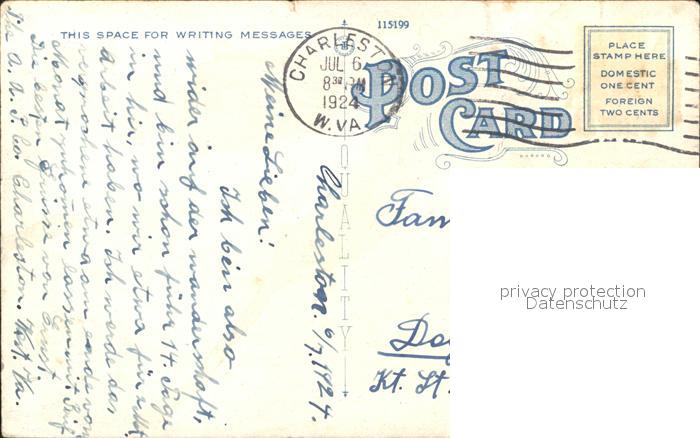 THIS SPACE FOR WRITING MESSAGES
115199
CHARLEST
JUL 6
8 30 PM
1924
W. VA.
POST
CARD
PLACE
STAMP HERE
DOMESTIC
ONE CENT
FOREIGN
TWO CENTS
QUALITY
Charleston. 6/7. 1924.
Meine Lieben!
Ich bin also
wider auf der wanderschaft,
und bin schon für 14 Tage
in hir, wo wir etwa für
arbeit haben. Ich werde das
etwa am ende vom
Monat lassen mit
Die besten Grüsse von Ernst.
Co. Charleston. West. Va.
Fam
Kt. St.
privacy protection
Datenschutz